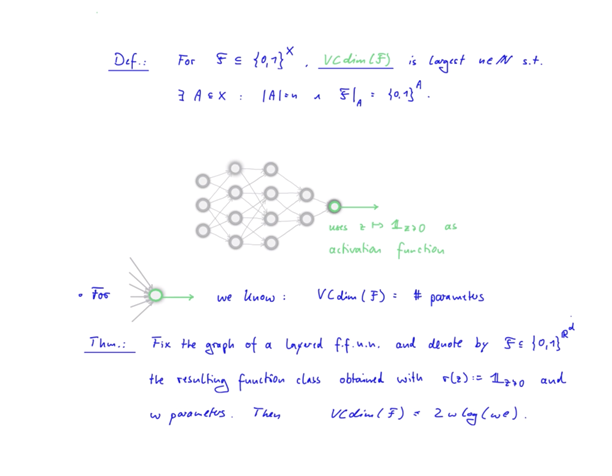 Def.: For F ⊆ {0,1}^X, VCdim(F) is largest n∈ℕ s.t.
∃ A ⊆ X : |A|=n ∧ F|_A = {0,1}^A.
uses z ↦ 𝟙_{z>0} as
activation function
• For we know: VCdim(F) = # parameters
Thm.: Fix the graph of a layered f.f.n.n. and denote by F ⊆ {0,1}^{ℝ^d}
the resulting function class obtained with σ(z) := 𝟙_{z>0} and
w parameters. Then VCdim(F) = 2w log(we).